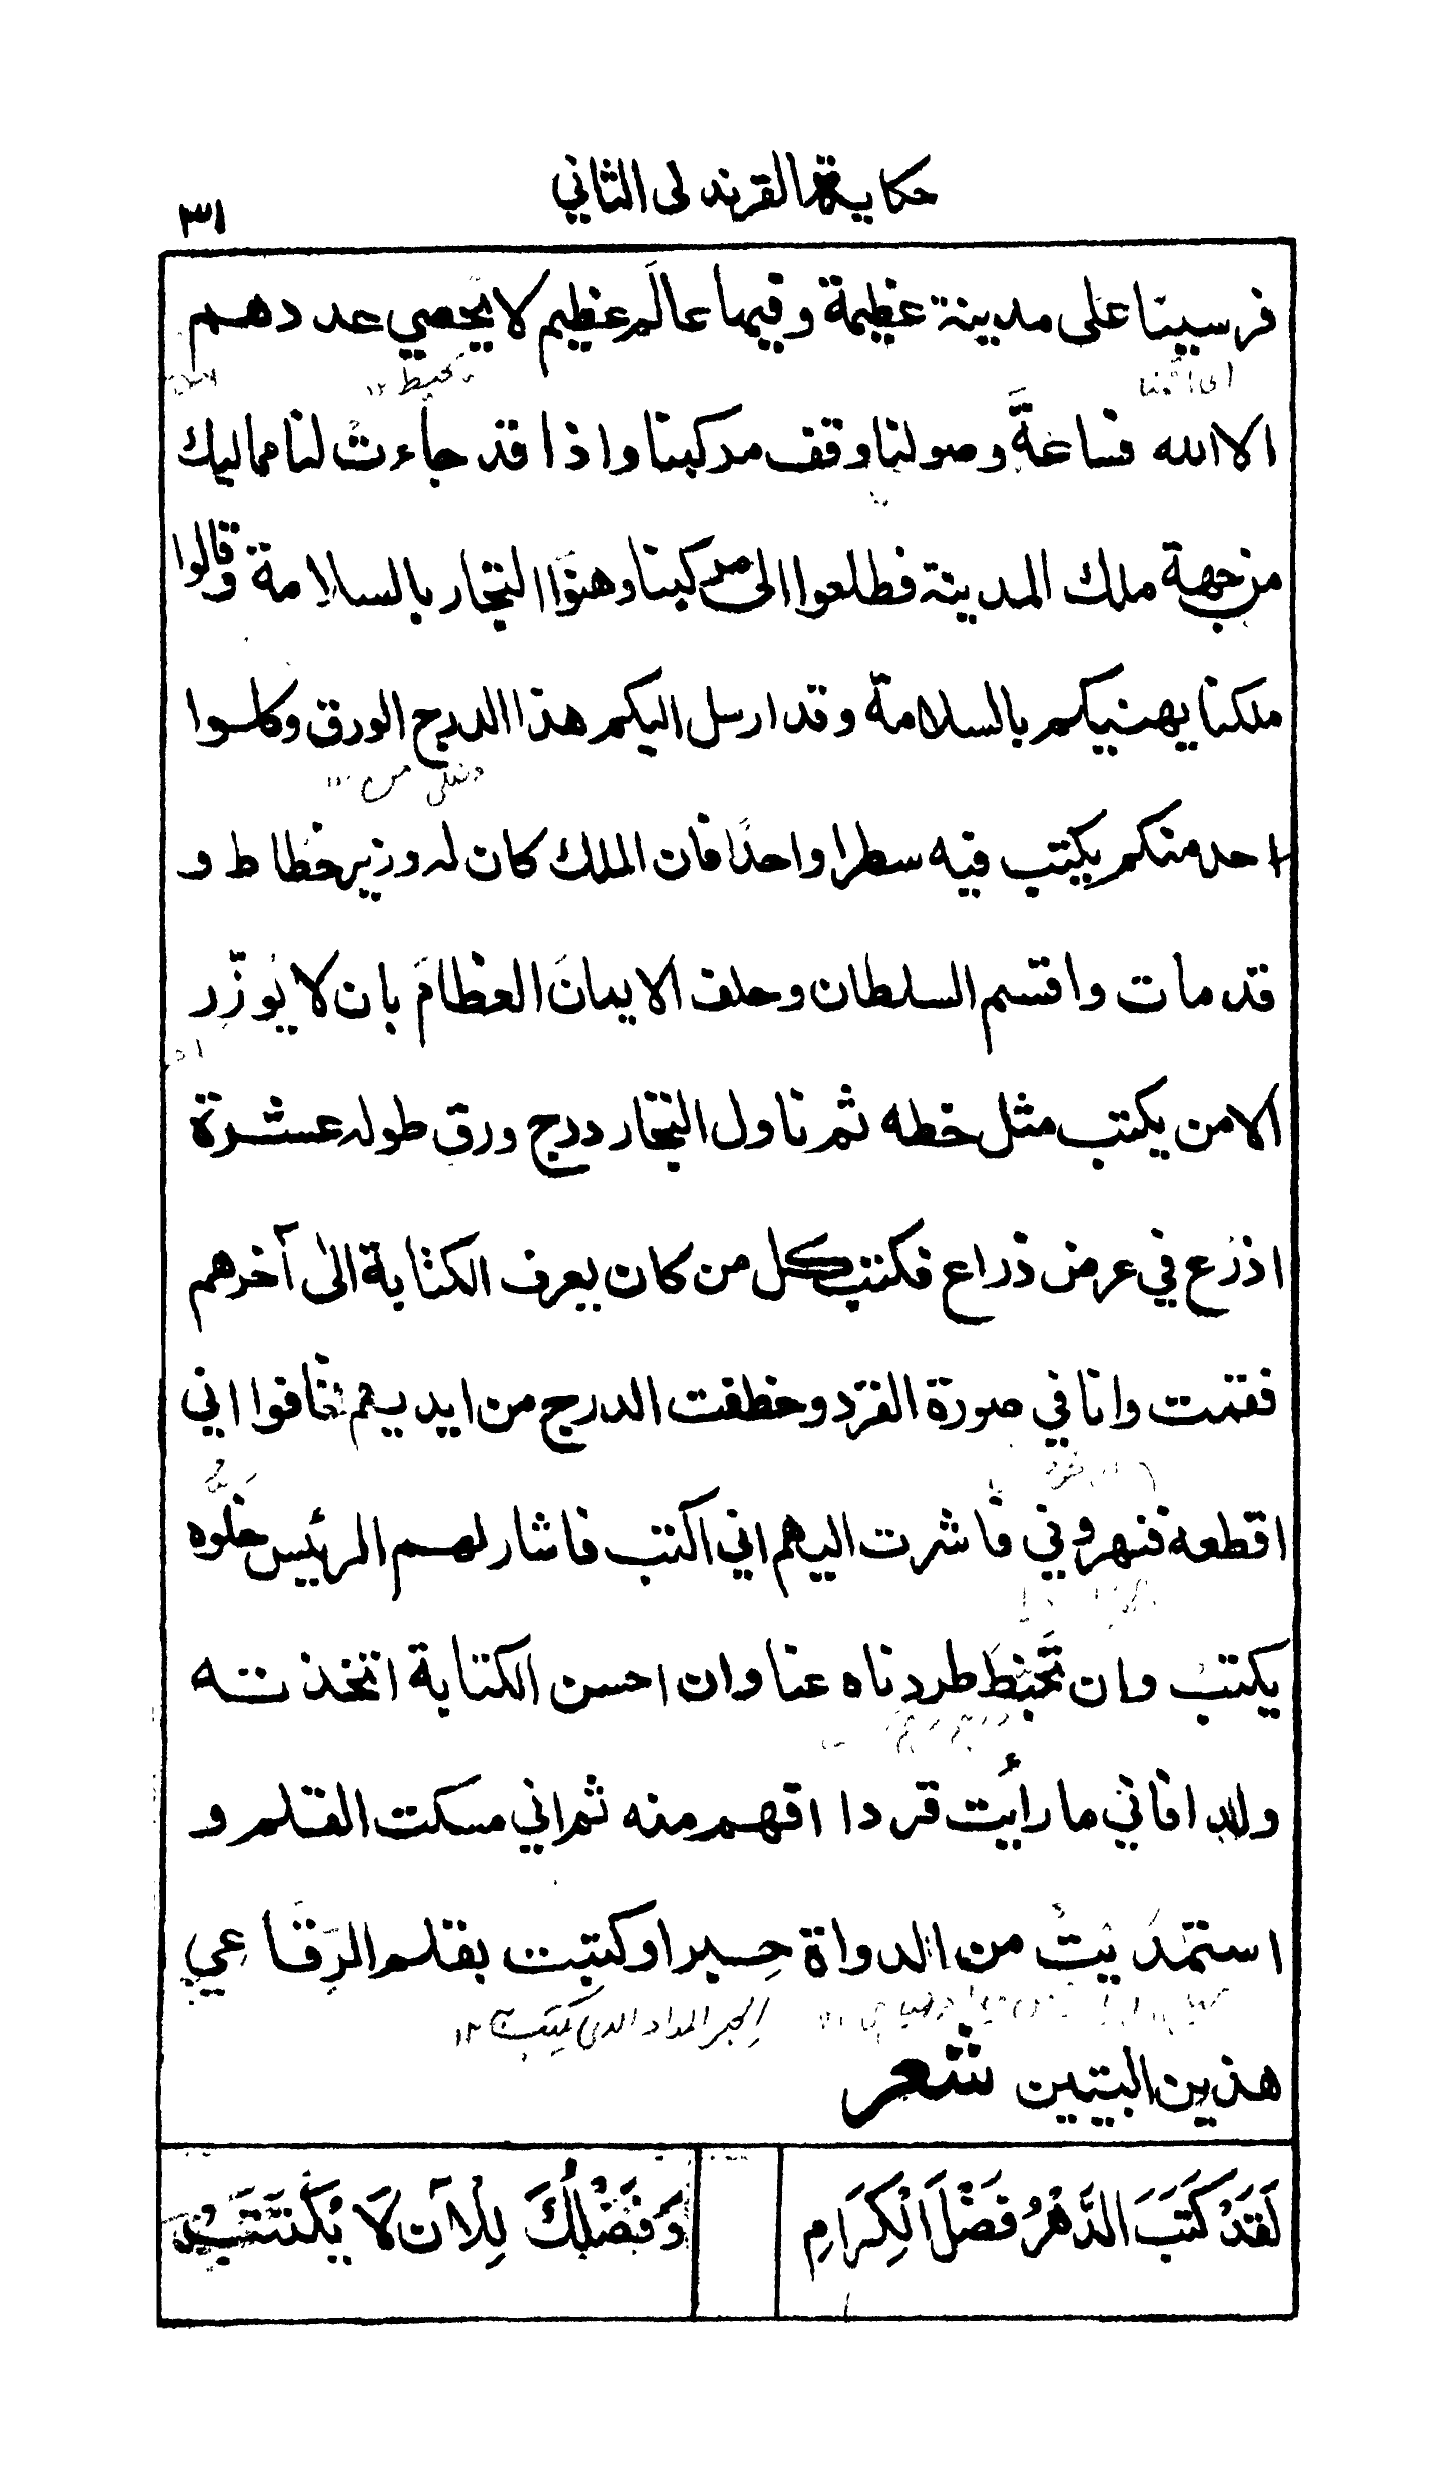 حكاية القرندلى الثاني
٣١
فرسينا على مدينة عظيمة وفيها عالَم عظيم لا يُحصي عددهم
اى اقمنا
يحيط ١٢
الا الله فساعةَ وصولنا وقف مركبنا واذا قد جاءت لنا مماليك
من جهة ملك المدينة فطلعوا الى مركبنا وهنوّا التجار بالسلامة وقالوا
ملكنا يهنيكم بالسلامة وقد ارسل اليكم هذا الدرج الورق وكلوا
احد منكم يكتب فيه سطرا واحدًا فان الملك كان له وزير خطاط و
قد مات واقسم السلطان وحلف الايمانَ العظامَ بان لا يُوزّر
الا من يكتب مثل خطه ثم ناول التجار درج ورق طوله عشرة
اذرُع في عرض ذراع فكتب كل من كان يعرف الكتابة الى آخرهم
فقمت وانا في صورة القرد وخطفت الدرج من ايديهم فخافوا اني
اقطعه فنهروني فاشرت اليهم اني اكتب فاشار لهم الرئيس خلّوه
يكتبُ وان تَخبّط طردناه عنا وان احسن الكتابة اتخذته
ولدا فاني ما رأيت قردا افهم منه ثم اني مسكت القلم و
استمدَيتُ من الدواة حِبرا وكتبت بقلم الرَقاعي
الحبر المداد الذى يكتب به ١٢
هذين البيتين شعر
لَقَدْ كَتَبَ الدَّهْرُ فَضْلَ الْكِرَامِ
وَفَضْلُكَ لِلْآن لَا يُكْتَتَبْ